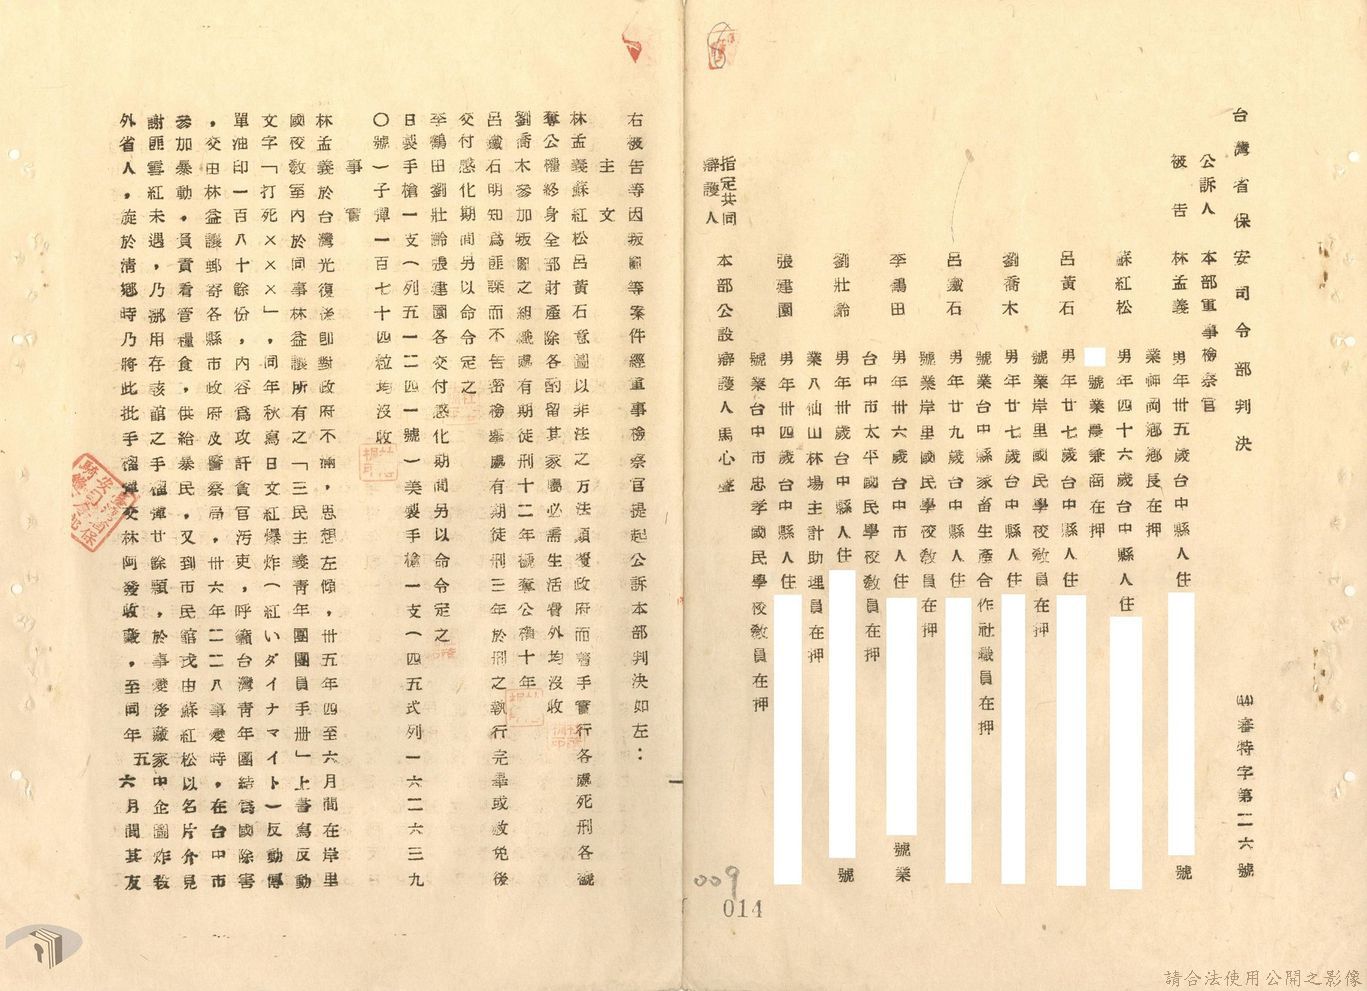 台灣省保安司令部判決
㈣審特字第一二六號
公訴人　本部軍事檢察官
被告　林孟義　男年卅五歲台中縣人住　號
業神岡鄉鄉長在押
蘇紅松　男年四十六歲台中縣人住
號業農兼商在押
呂黃石　男年廿七歲台中縣人住
號業岸里國民學校教員在押
劉喬木　男年廿七歲台中縣人住
號業台中縣家畜生產合作社職員在押
呂鐵石　男年廿九歲台中縣人住
號業岸里國民學校教員在押
李鶴田　男年卅六歲台中市人住　號業
台中市太平國民學校教員在押
劉壯齡　男年卅歲台中縣人住　號
業八仙山林場主計助理員在押
張建園　男年卅四歲台中縣人住
號業台中市忠孝國民學校教員在押
指定共同
辯護人　本部公設辯護人馬心聲
009
014
右被告等因叛亂等案件經軍事檢察官提起公訴本部判決如左：
主文
林孟義蘇紅松呂黃石意圖以非法之方法顛覆政府而著手實行各處死刑各褫
奪公權終身全部財產除各酌留其家屬必需生活費外均沒收
劉喬木參加叛亂之組織處有期徒刑十二年褫奪公權十年
呂鐵石明知為匪諜而不告密檢舉處有期徒刑三年於刑之執行完畢或赦免後
交付感化期間另以命令定之
李鶴田劉壯齡張建園各交付感化期間另以命令定之
日製手槍一支（列五一二四一號）美製手槍一支（四五式列一六二六三九
〇號）子彈一百七十四粒均沒收
事實
林孟義於台灣光復後即對政府不滿，思想左傾，卅五年四至六月間在岸里
國校教室內於同事林益謙所有之「三民主義青年團團員手冊」上書寫反動
文字「打死×××」，同年秋寫日文紅爆炸（紅いダイナマイト）反動傳
單油印一百八十餘份，內容為攻訐貪官污吏，呼籲台灣青年團結為國除害
，交由林益謙郵寄各縣市政府及警察局，卅六年二二八事變時，在台中市
參加暴動，負責看管糧食，供給暴民，又到市民館戎由蘇紅松以名片介見
謝匪雪紅未遇，乃挪用存該館之手榴彈廿餘顆，於事變後藏家中企圖炸殺
外省人，旋於清鄉時乃將此批手榴彈交林阿發收藏，至同年五六月間其友
請合法使用公開之影像